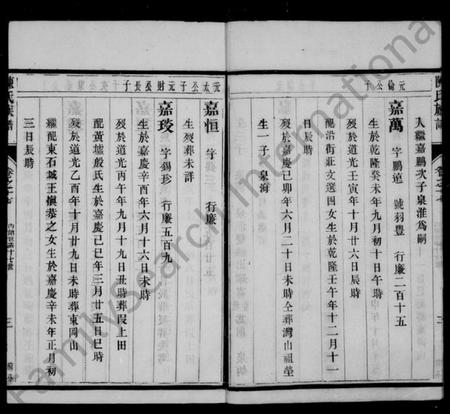 陳氏族譜
卷之七
元倫公子
入繼嘉鵬次子泉淮為嗣
嘉萬 字鵬遠 號羽豐 行廉二百十五
生於乾隆癸未年九月初十日辰時
歿於道光壬寅年十月十六日辰時
配沿街莊文選四女生於乾隆壬午年十二月十一
日辰時
歿於嘉慶己卯年六月二十日未時仝葬灣山祖塋
生一子 泉海
元太公子
元財公長子
嘉恒 字錫三 行廉
生歿葬未詳
嘉琝 字錫珍 行廉五百九
生於嘉慶辛酉年六月十六日未時
歿於道光丙午年九月十九日丑時葬葭上田
配黃墩殷氏生於嘉慶己巳年三月廿五日巳時
歿於道光乙酉年十月廿九日未時葬東岡山
繼配東石城王懶恭之女生於嘉慶辛未年正月初
三日辰時
陳氏族譜
卷之七
FamilySearch International